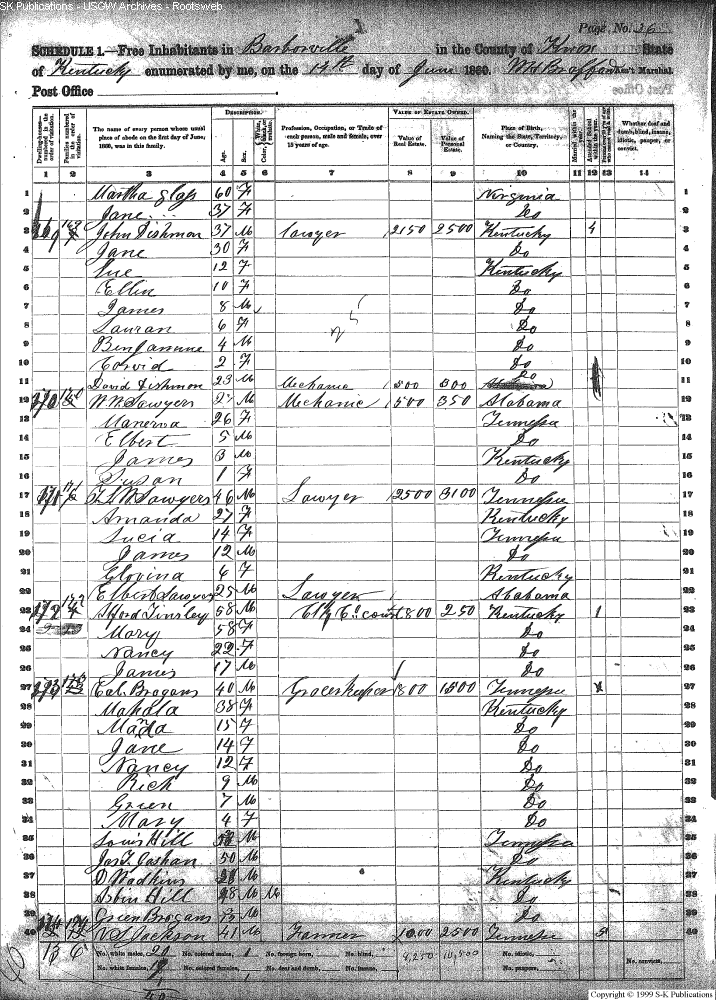 SK Publications - USGW Archives - Rootsweb
Page No. 26
SCHEDULE 1.—Free Inhabitants in Barborville in the County of Knox State
of Kentucky enumerated by me, on the 19th day of June 1860. Ass't Marshal.
Post Office
Dwelling-houses—numbered in the order of visitation.
Families numbered in the order of visitation.
The name of every person whose usual place of abode on the first day of June, 1860, was in this family.
DESCRIPTION.
Age.
Sex.
Color, White, black, or mulatto.
Profession, Occupation, or Trade of each person, male and female, over 15 years of age.
VALUE OF ESTATE OWNED.
Value of Real Estate.
Value of Personal Estate.
Place of Birth, Naming the State, Territory, or Country.
Married within the year.
Attended School within the year.
Whether deaf and dumb, blind, insane, idiotic, pauper, or convict.
1 2 3 4 5 6 7 8 9 10 11 12 13 14
1 Martha Glass 60 F Virginia 1
2 Jane 37 F Do 2
3 269 John Dishman 37 M Lawyer 2150 2500 Kentucky 4 3
4 Jane 30 F Do 4
5 Sue 12 F Kentucky 5
6 Ellin 10 F Do 6
7 James 8 M Do 7
8 Lauran 6 F Do 8
9 M Do 9
10 2 F Do 10
11 David Dishmon 23 M Mechanic 500 300 Do 11
12 270 W. W. Sawyers M Mechanic 1500 350 Alabama 12
13 Manerva 26 F Tennessee 13
14 Elbert 5 M Do 14
15 James 3 M Kentucky 15
16 Susan 1 F Do 16
17 271 Sawyers 46 M Lawyer 2500 3100 Tennessee 17
18 Amanda 27 F Kentucky 18
19 Lucia 14 F Tennessee 19
20 James 12 M Do 20
21 Glovina 6 F Kentucky 21
22 Elbert Sawyers 25 M Lawyer Alabama 22
23 272 Tinsley 58 M Clk Co. court 800 250 Kentucky 1 23
24 Mary 58 F Do 24
25 Nancy 22 F Do 25
26 James 17 M Do 26
27 273 Brogans 40 M Grocerkeeper 800 1500 Tennessee 27
28 Mahala 38 F Kentucky 28
29 15 F Do 29
30 Jane 14 F Do 30
31 Nancy 12 F Do 31
32 Rich 9 M Do 32
33 Green 7 M Do 33
34 Mary 4 F Do 34
35 Louis Hill M Tennessee 35
36 50 M Do 36
37 D Wadkins M Kentucky 37
38 Hill M Do 38
39 Green Brogans M Do 39
40 274 Jackson 41 M Farmer 1000 2500 Tennessee 40
No. white males, 20 No. colored males, 1 No. foreign born, No. blind, 8,250 10,500 No. idiotic, No. convicts,
No. white females, 19 No. colored females, No. deaf and dumb, No. insane, No. paupers,
40
Copyright © 1999 S-K Publications